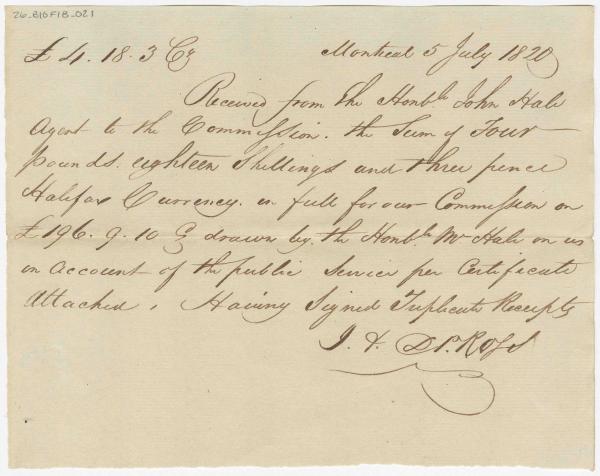 26_B10F1B_021
£ 4. 18. 3 Cy Montreal 5 July 1820
Received from the Honble John Hale
Agent to the Commission. the Sum of Four
pounds. eighteen Shillings and three pence
Halifax Currency. in full for our Commission on
£ 196. 9. 10 drawn by the Honble Mr Hale on us
on account of the public Service per Certificate
Attached, Having Signed Triplicate Receipts
J. & D. Ross